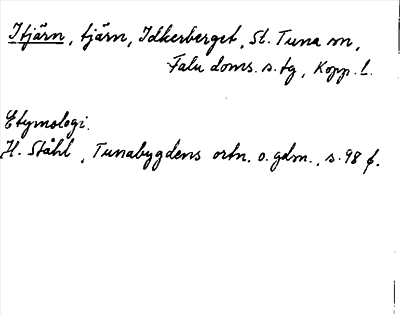 Itjärn, tjärn, Idkerberget, St. Tuna sn,
Falu doms. s. tg, Kopp. l.
Etymologi.
H. Ståhl, Tunabygdens ortn. o. gdn., s. 98 f.